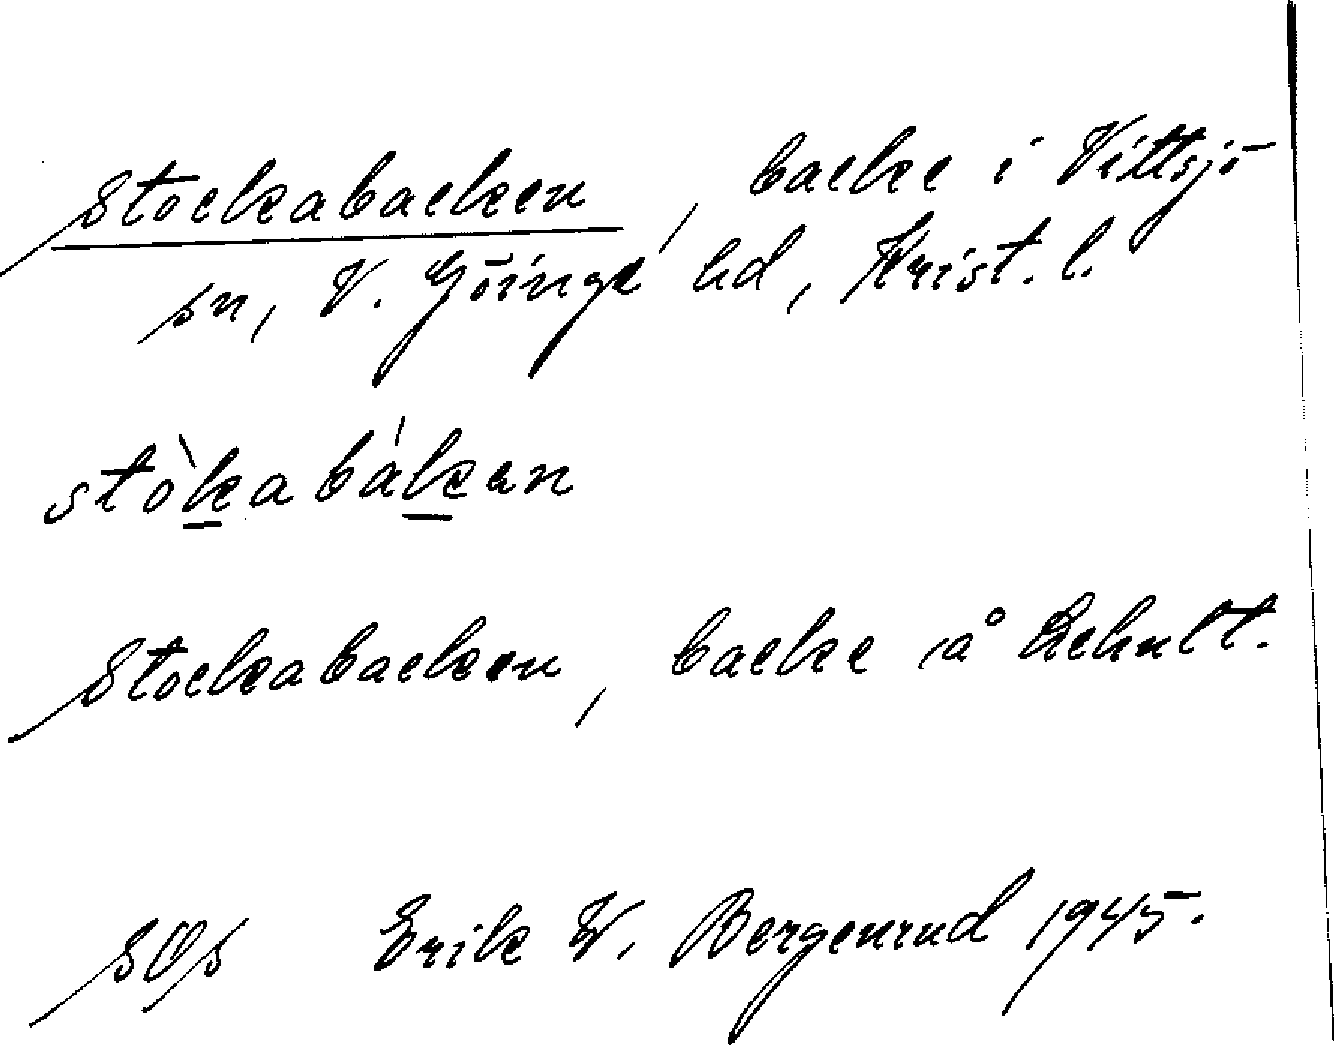 Stockabacken, backe i Vittsjö
sn, V. Göinge hd, Krist. l.
stòkabákan
Stockabacken, backe å Rehult.
SOS Erik W. Bergenrud 1945.